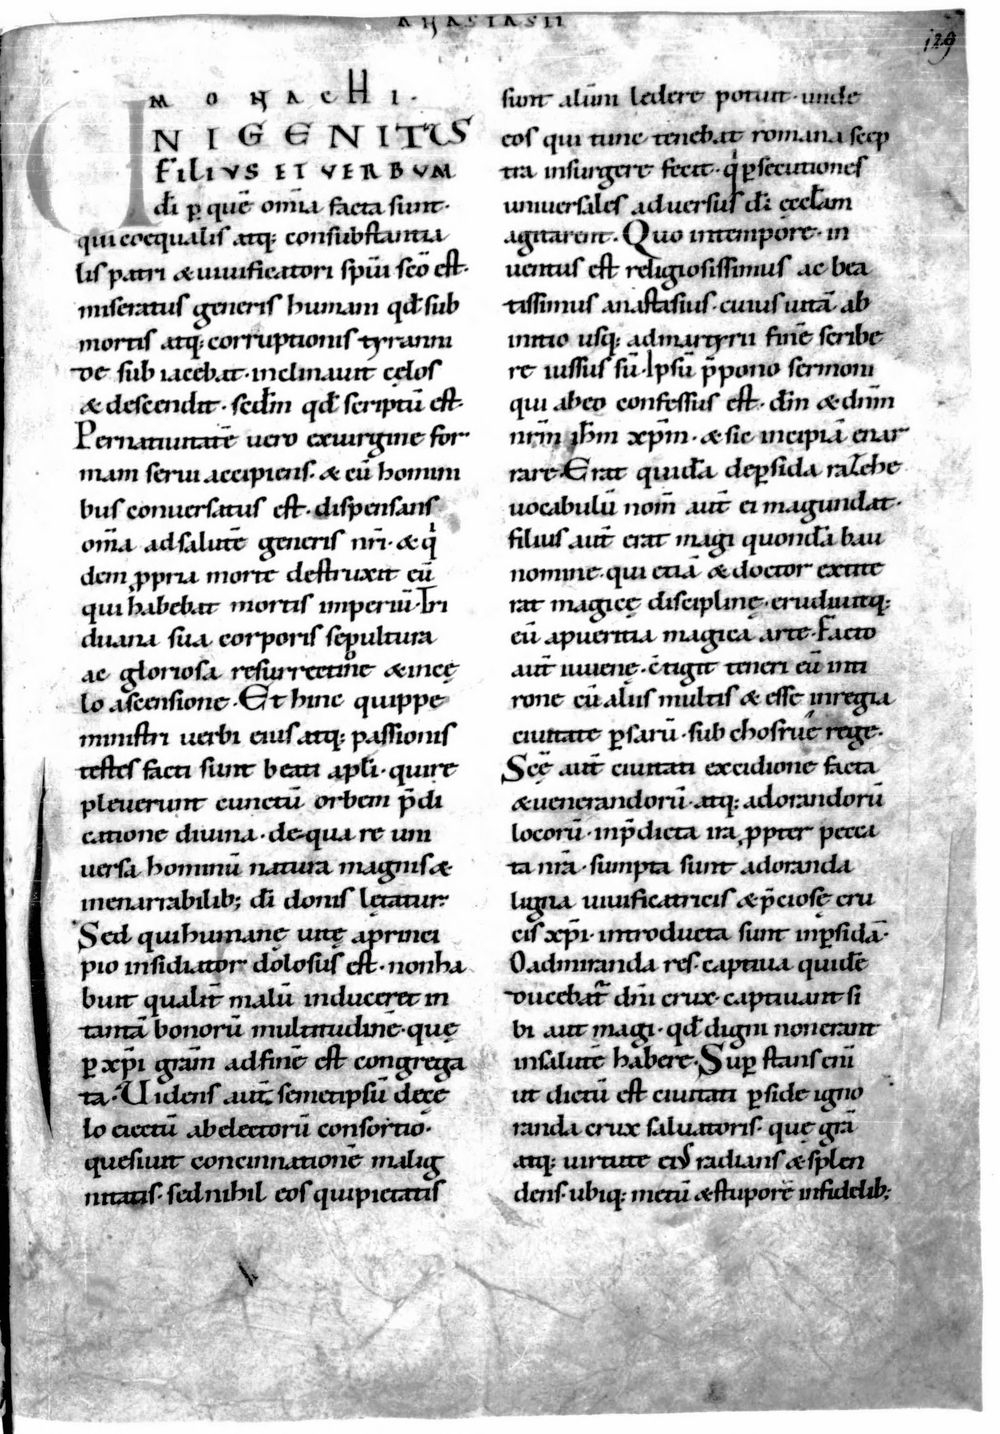 ANASTASII
129
MONACHI·
UNIGENITUS
FILIVS ET VERBVM
dī ꝑ quē om̄ia facta sunt·
qui coequalis atq; consubstantia
lis patri & uiuificatori spūi scō est·
miseratus generis humani qd̄ sub
mortis atq; corruptionis tyranni
de sub iacebat· inclinauit cęlos
& descendit· sedm̄ qd̄ scriptū est·
Pernatiuitatē uero exuirgine for
mam serui accipiens· & cū homini
bus conuersatus est· dispensans
om̄ia adsalutē generis nr̄i· & q̇
dem ꝓpria morte destruxit eū
qui habebat mortis imperiū· Tri
duana sua corporis sepultura
ac gloriosa resurrectione & incę
lo ascensione· Et hinc quippe
ministri uerbi eius atq; passionis
testes facti sunt beati apl̄i· quire
pleuerunt cunctū orbem p̄di
catione diuina· de qua re uni
uersa hominū natura magnis &
inenarrabilib; dī donis lętatur·
Sed quihumanę uitę aprinci
pio insidiator dolosus est· nonha
buit qualit̄ malū induceret in
tantā bonorū multitudinē· quę
ꝑ xp̄i gram̄ adfinē est congrega
ta· Uidens aut̄ semetipsū decę
lo eiectū abelectorū consortio·
quesiuit concinnationē malig
nitatis· sednihil eos quipietatis
sunt alūni ledere potuit· unde
eos qui tunc tenebat romana scep
tra insurgere fecit· q̇ ꝑsecutiones
uniuersales aduersus dī ęccl̄am
agitarent· Quo intempore· in
uentus est religiosissimus ac bea
tissimus anastasius· cuius uitā ab
initio usq; admartyrii finē scribe
re iussus sū· Ipsū p̄pono sermoni
qui abeo confessus est· dm̄ & dnm̄
nrm̄ ihm̄ xpm̄· & sic incipiā enar
rare· Erat quidā deꝑsida razehe
vocabulū nom̄ aut̄ ei magundat·
filius aut̄ erat magi quondā bau
nomine· qui etiā & doctor extite
rat magicę disciplinę· erudiuitq;
eū apueritia magica arte· Facto
aut̄ iuuenę· c̄tigit teneri eū inti
rone cū aliis multis & esse inregia
ciuitate ꝑsarū· sub chosrue rege·
Scę̄ aut̄ ciuitati excidione facta
& uenerandorū· atq; adorandorū
locorū· inp̄dicta ira ꝓpter pecca
ta nr̄a· sumpta sunt adoranda
ligna uiuificatricis & p̄ciosę cru
cis xp̄i· introducta sunt inꝑsidā·
O admiranda res· captiua quidē
ducebat̄ dn̄i crux· captiuauit si
bi aut magi· qd̄ digni nonerant
insalutē habere· Suꝑ stans eni
ut dictū est ciuitati ꝑside igno
randa crux saluatoris· quę grā
atq; uirtute eius radians & splen
dens· ubiq; metū & stuporē infidelib;